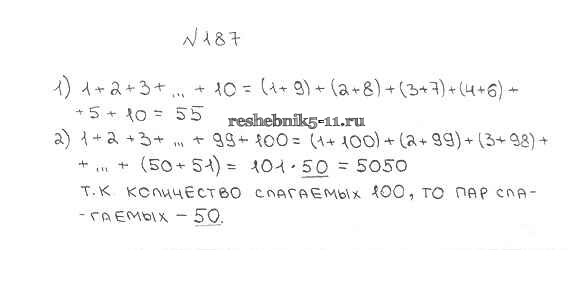 №187
1) 1+2+3+ ... + 10 = (1+9)+(2+8)+(3+7)+(4+6)+
+5+10 = 55
reshebnik5-11.ru
2) 1+2+3+ ... + 99+100 = (1+100)+(2+99)+(3+98)+
+ ... + (50+51) = 101 · 50 = 5050
Т.К. КОЛИЧЕСТВО СЛАГАЕМЫХ 100, ТО ПАР СЛА-
-ГАЕМЫХ – 50.